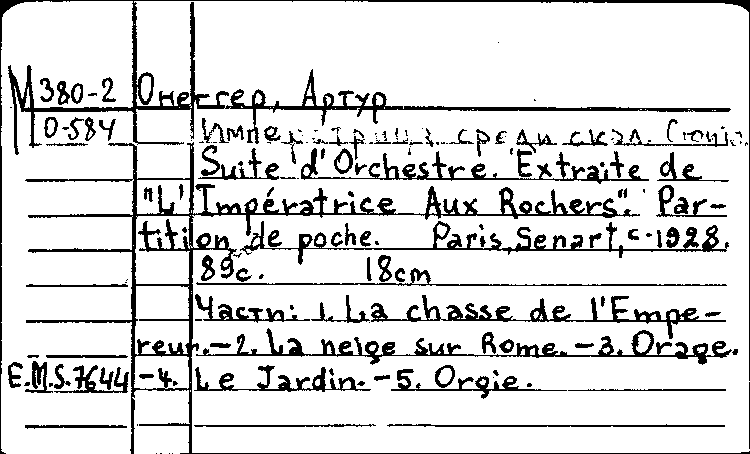 М 380-2 Онеггер, Артур
О-584 Императрица среди скал. Сюита.
Suite d'Orchestre. Extraite de
"L'Impératrice Aux Rochers". Par-
tition de poche. Paris, Senart, c. 1928.
89c. 18cm
Части: 1. La chasse de l'Empe-
reur. -2. La neige sur Rome. -3. Orage.
E.M.S. 7644 -4. Le Jardin. -5. Orgie.